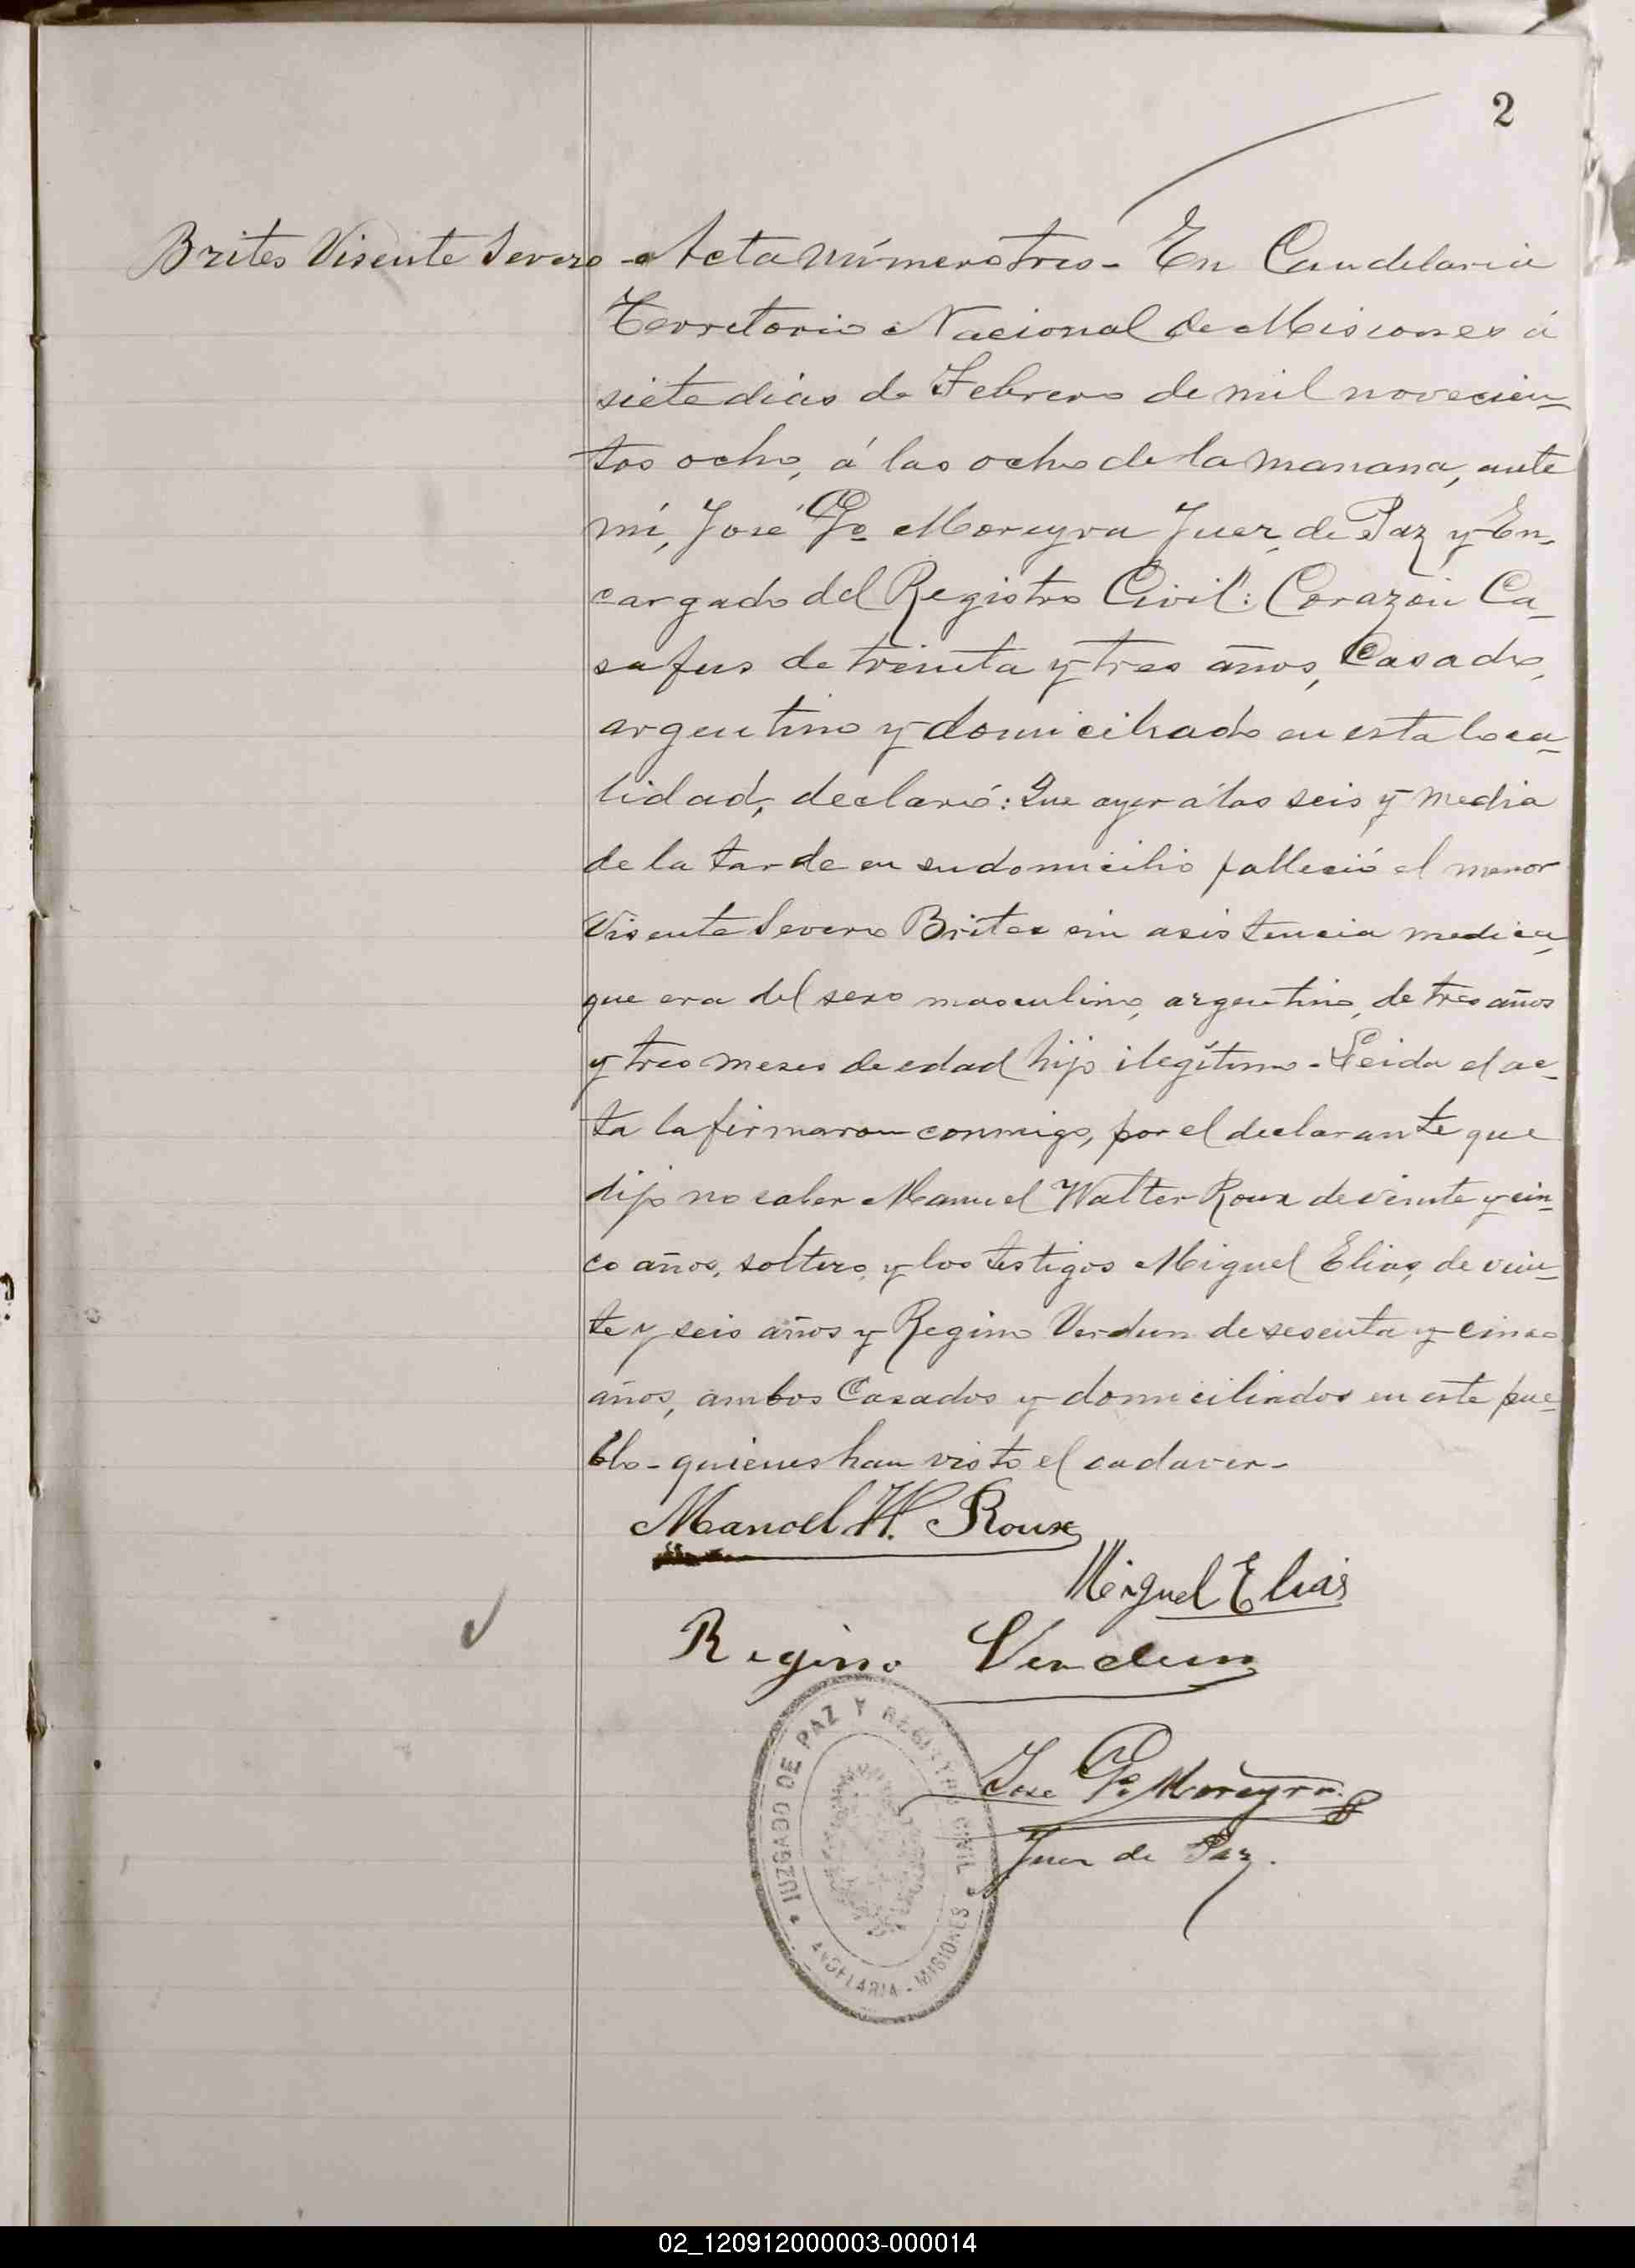 2
Brites Visente Severo - Acta número tres - En Candelaria
Territorio Nacional de Misiones á
siete dias de Febrero de mil novecien-
tos ocho, á las ocho de la manana, ante
mi, José Go Moreyra Juez de Paz y En-
cargado del Registro Civil: Corazón Ca-
safus de treinta y tres años, Casado,
argentino y domiciliado en esta loca-
lidad, declaró: Que ayer á las seis y media
de la tarde en su domicilio falleció el menor
Visente Severo Brites sin asistencia medica,
que era del sexo masculino, argentino, de tres años
y tres meses de edad hijo ilegítimo - Leida el ac-
ta la firmaron conmigo, por el declarante que
dijo no saber Manuel Walter Roux de veinte y cin-
co años, soltero, y los testigos Miguel Elias, de vein-
te y seis años y Regino Verdun de sesenta y cinco
años, ambos Casados y domiciliados en este pue-
blo - quienes han visto el cadaver -
Manoel W. Roux
Miguel Elias
Regino Verdun
JUZGADO DE PAZ Y REGISTRO CIVIL
ANDELARIA - MISIONES
Jose Go Moreyra
Juez de Paz.
02_120912000003-000014